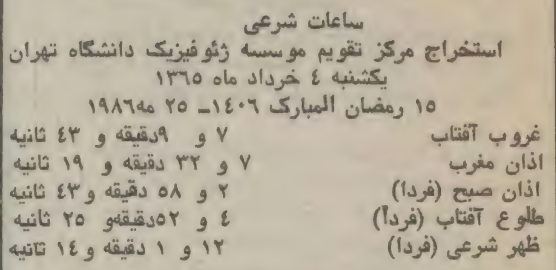 ساعات شرعی
استخراج مرکز تقویم موسسه ژئوفیزیک دانشگاه تهران
یکشنبه ٤ خرداد ماه ١٣٦٥
١٥ رمضان المبارک ١٤٠٦ـ ٢٥ مه١٩٨٦
غروب آفتاب ٧ و ٩دقیقه و ٤٣ ثانیه
اذان مغرب ٧ و ٣٢ دقیقه و ١٩ ثانیه
اذان صبح (فردا) ٢ و ٥٨ دقیقه و٤٣ ثانیه
طلوع آفتاب (فردا) ٤ و ٥٢دقیقهو ٢٥ ثانیه
ظهر شرعی (فردا) ١٢ و ١ دقیقه و١٤ ثانیه